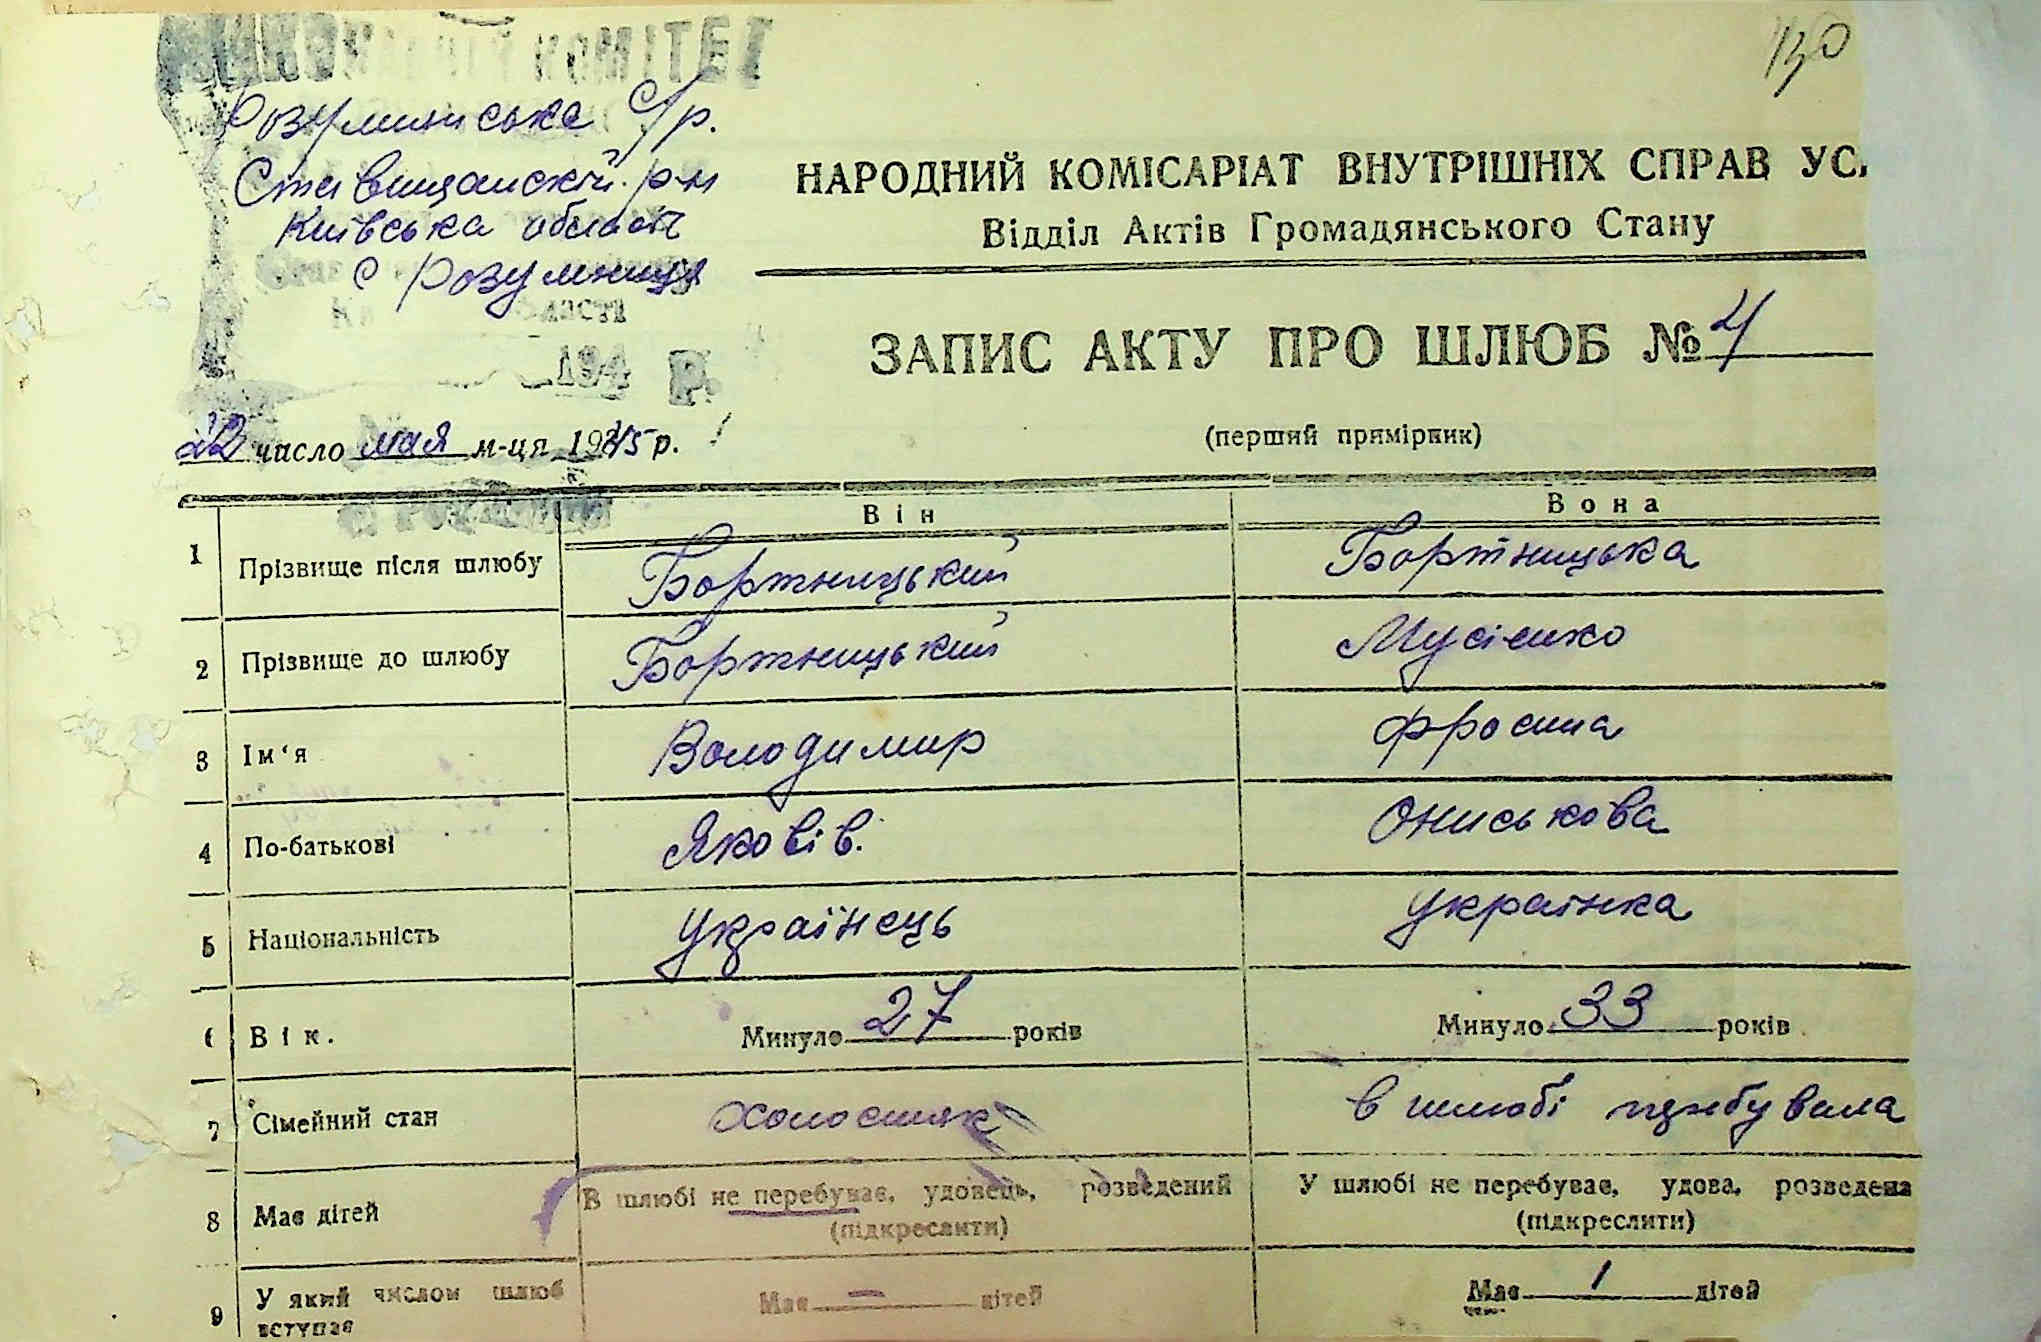 130
Розумниська с/р.
Ставищанский р-н
Київська область
с Розумниця
ласти
194 р.
НАРОДНИЙ КОМІСАРІАТ ВНУТРІШНІХ СПРАВ УС
Відділ Актів Громадянського Стану
ЗАПИС АКТУ ПРО ШЛЮБ № 4
(перший примірник)
22 число мая м-ця 1945 р.
Він Вона
1 Прізвище після шлюбу Бортницький Бортницька
2 Прізвище до шлюбу Бортницький Мусієнко
3 Ім'я Володимир Фросина
4 По-батькові Яковів. Ониськова
5 Національність Українець Українка
6 Вік. Минуло 27 років Минуло 33 років
7 Сімейний стан Холостяк в шлюбі пребувала
8 Має дітей В шлюбі не перебуває, удовець, розведений У шлюбі не перебуває, удова, розведена
(підкреслити) (підкреслити)
9 У який числом шлюб вступає Має — дітей Має 1 дітей